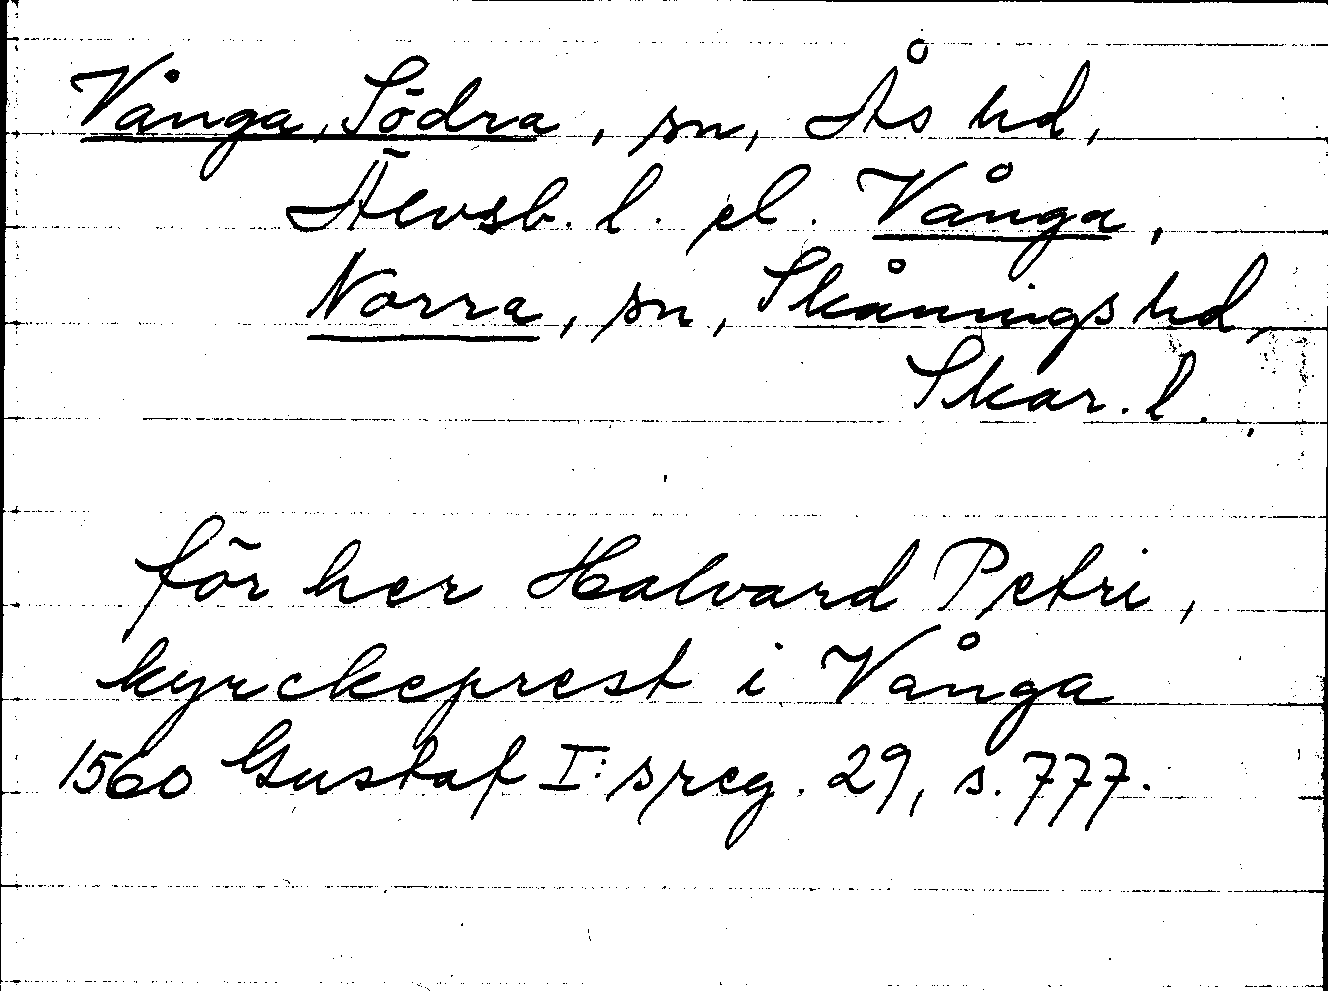 Vånga, Södra, sn, Ås hd,
Älvsb. l. el. Vånga,
Norra, sn, Skånings hd,
Skar. l.
för her Halvard Petri,
kyrckeprest i Vånga
1560 Gustaf I:s reg. 29, s. 777.